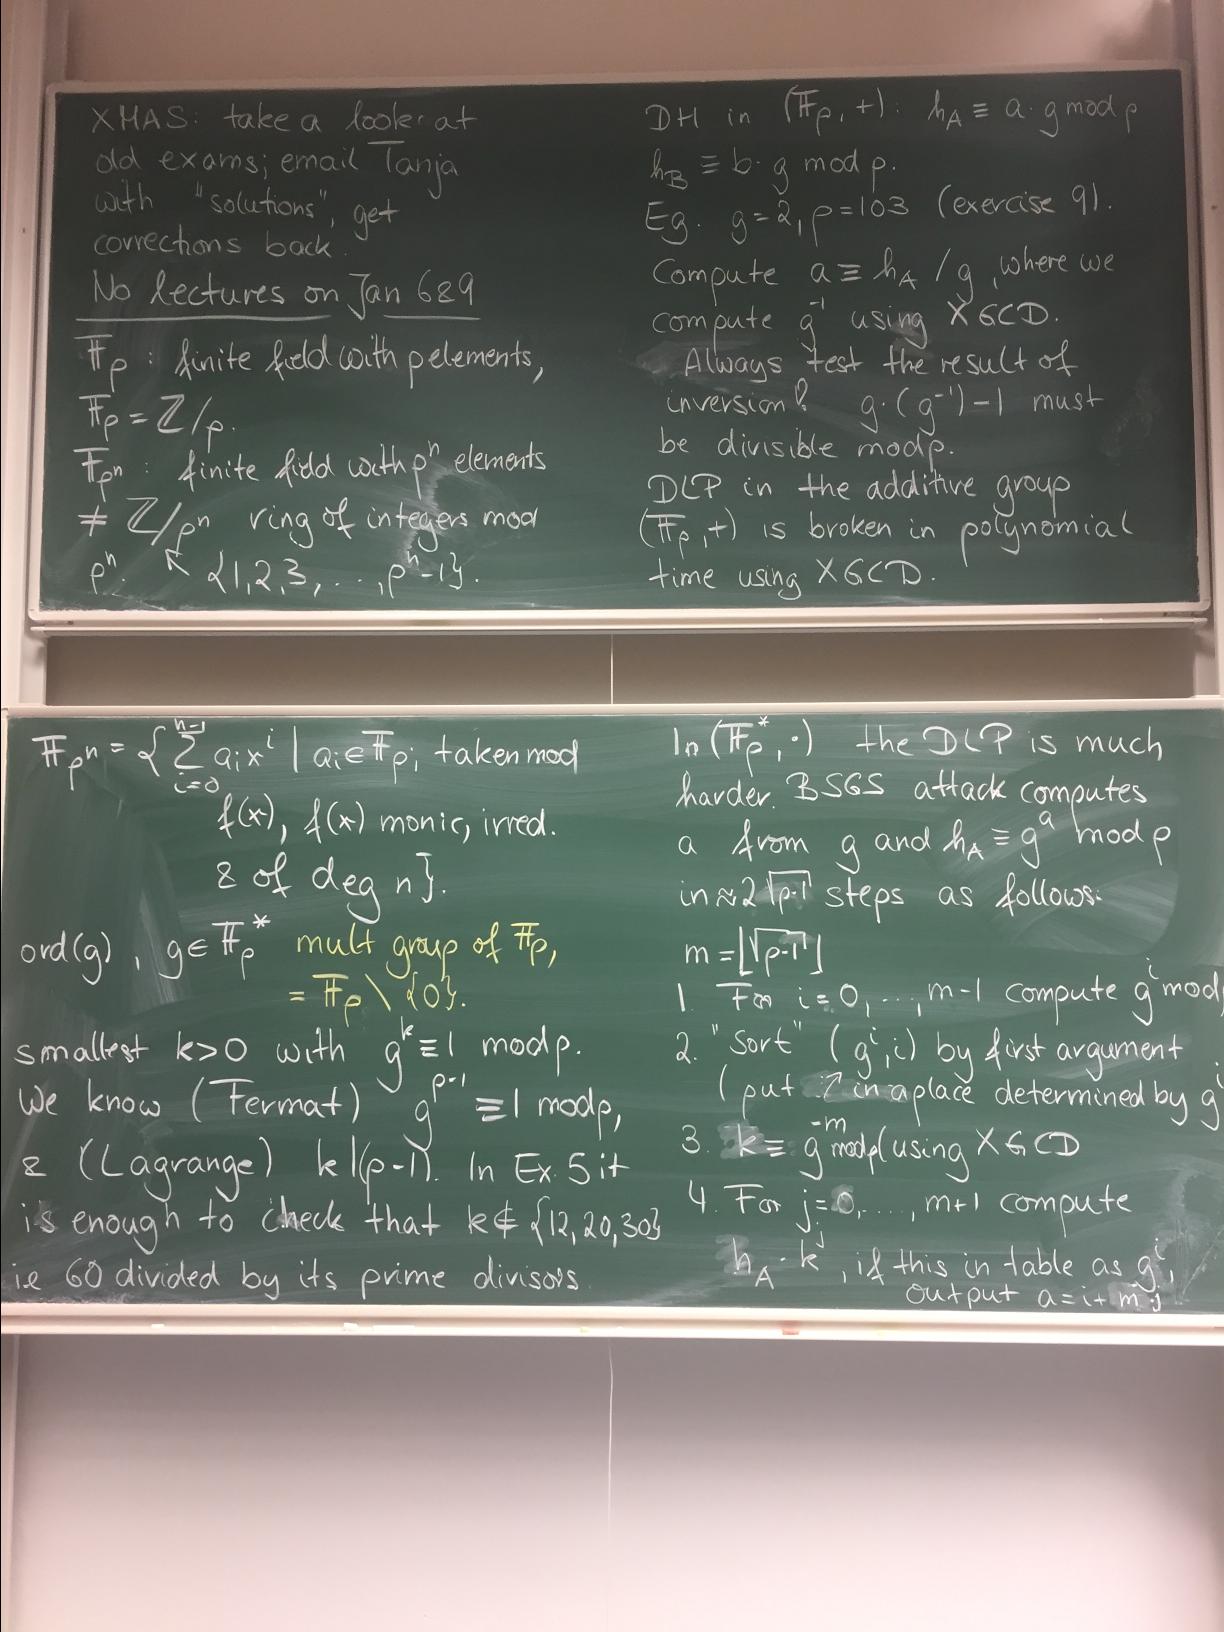 XMAS: take a look at
old exams; email Tanja
with "solutions", get
corrections back.
No lectures on Jan 6&9
𝔽p : finite field with p elements,
𝔽p = ℤ/p.
𝔽pⁿ : finite field with pⁿ elements
≠ ℤ/pⁿ ring of integers mod
pⁿ. ↖ {1,2,3,...,pⁿ-1}.
DH in (𝔽p,+): hA ≡ a·g mod p
hB ≡ b·g mod p.
Eg. g=2, p=103 (exercise 9).
Compute a ≡ hA/g, where we
compute g⁻¹ using XGCD.
Always test the result of
inversion! g·(g⁻¹)-1 must
be divisible mod p.
DLP in the additive group
(𝔽p,+) is broken in polynomial
time using XGCD.
𝔽pⁿ = {∑_{i=0}^{n-1} aᵢxⁱ | aᵢ∈𝔽p, taken mod
f(x), f(x) monic, irred.
& of deg n}.
ord(g), g∈𝔽p* mult group of 𝔽p,
= 𝔽p\{0}.
smallest k>0 with gᵏ≡1 mod p.
We know (Fermat) g^{p-1} ≡1 mod p,
& (Lagrange) k|(p-1). In Ex. 5 it
is enough to check that k∉{12,20,30}
ie 60 divided by its prime divisors.
In (𝔽p*,·) the DLP is much
harder. BSGS attack computes
a from g and hA≡gᵃ mod p
in ≈2√(p-1) steps as follows:
m=⌊√(p-1)⌋
1. For i=0,...,m-1 compute gⁱ mod
2. "Sort" (gⁱ,i) by first argument
(put i in a place determined by gⁱ
3. k≡ g⁻ᵐ mod p (using XGCD
4. For j=0,...,m+1 compute
hA·kʲ, if this in table as gⁱ,
output a=i+m·j